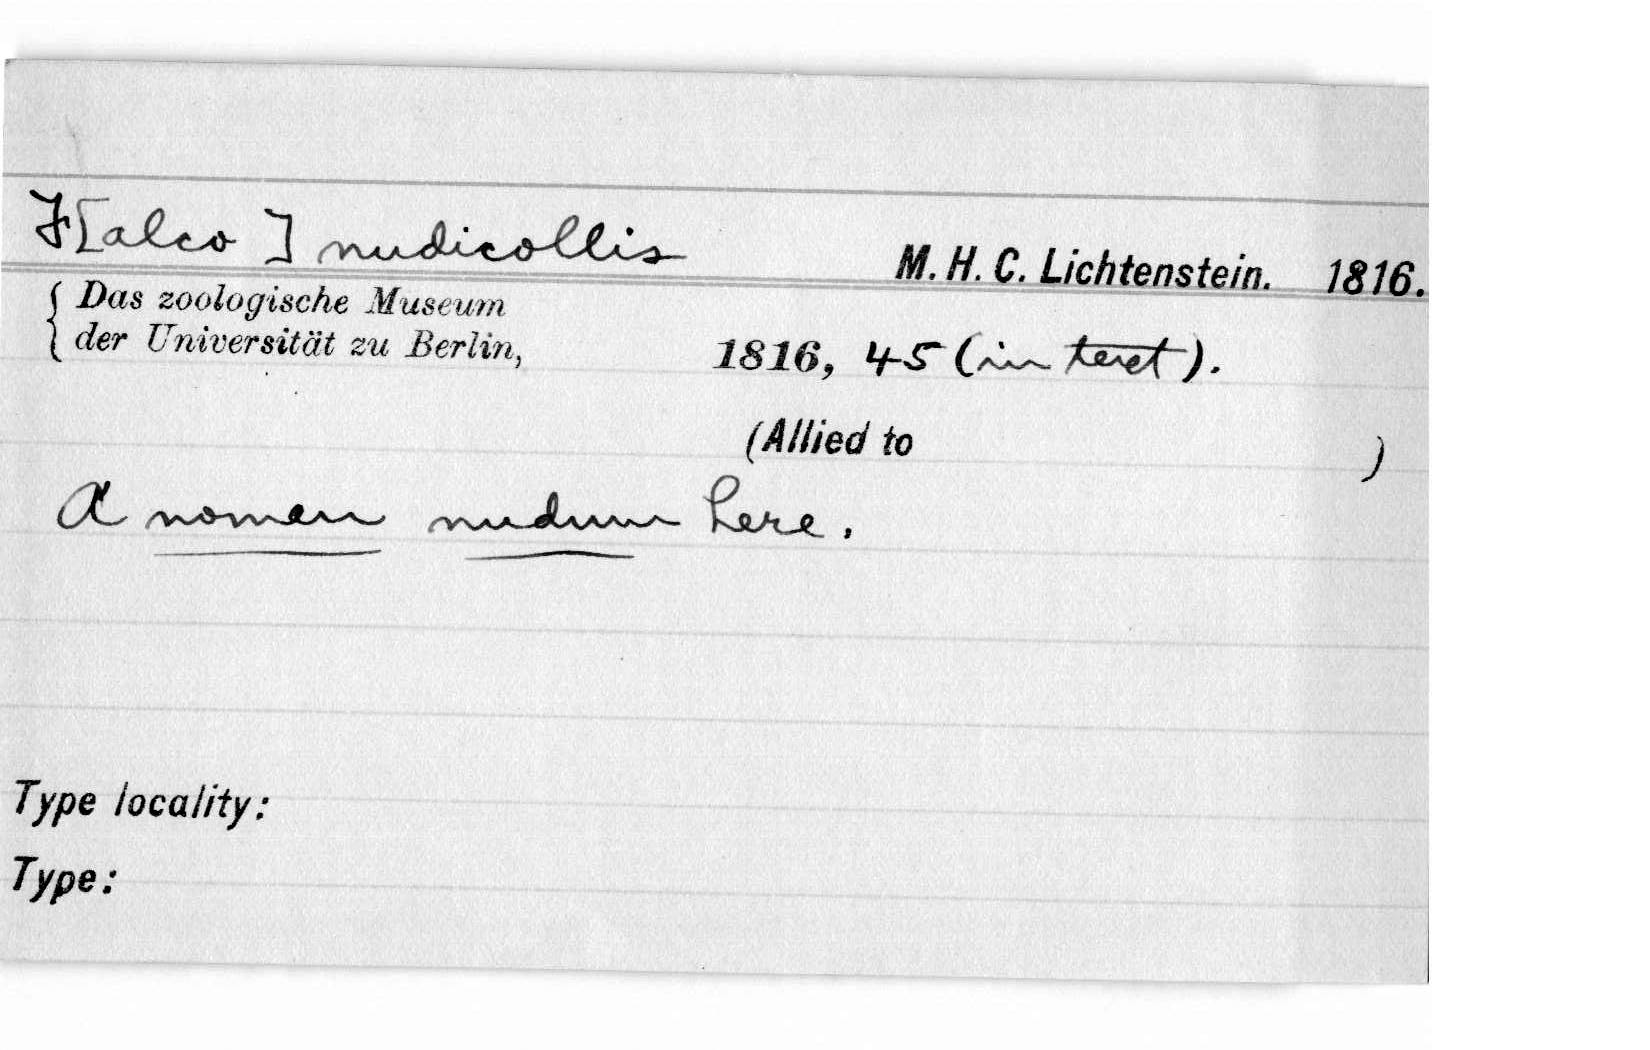 F[alco] nudicollis M. H. C. Lichtenstein. 1816.
{ Das zoologische Museum
der Universität zu Berlin, 1816, 45 (in text).
(Allied to )
A nomen nudum here.
Type locality:
Type: